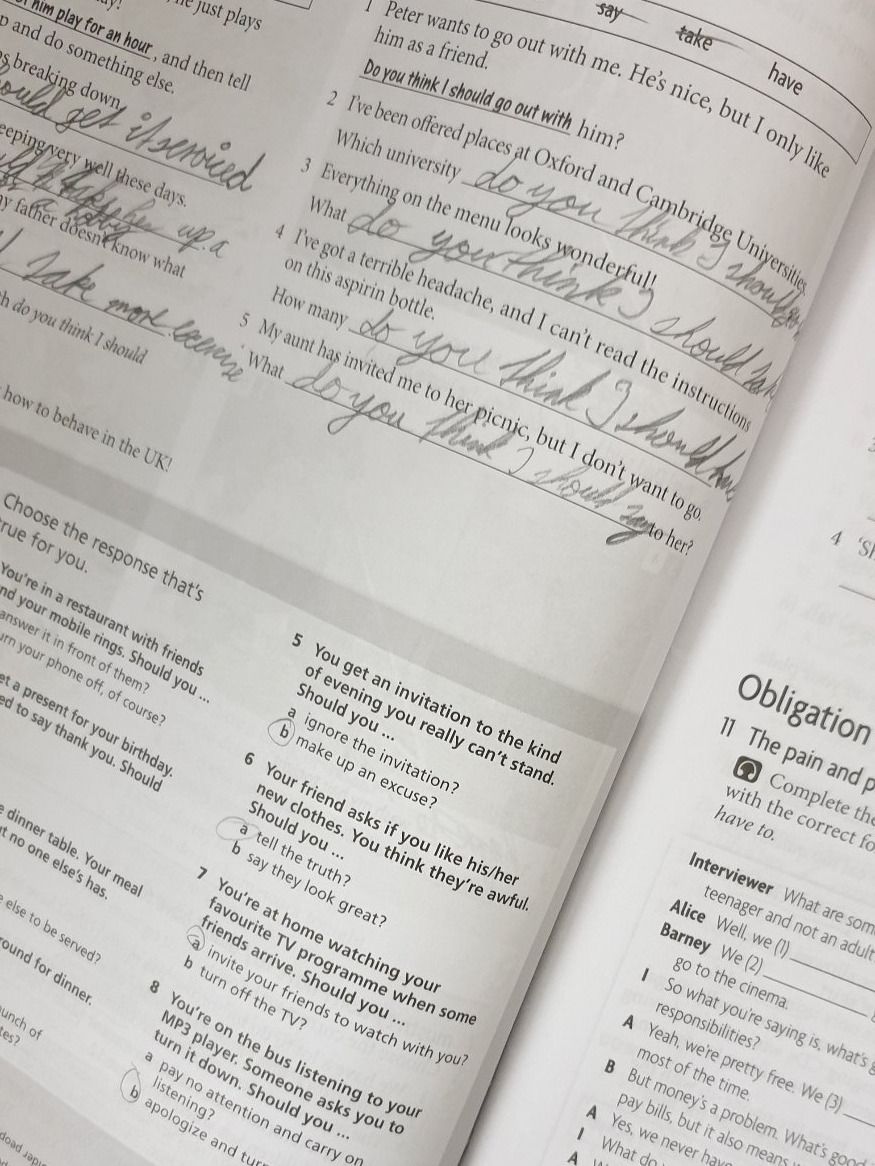 he just plays
him play for an hour, and then tell
and do something else.
breaking down
get it serviced
very well these days.
up a
hobby
father doesn't know what
I take more exercise
do you think I should
how to behave in the UK!
say take have
1 Peter wants to go out with me. He's nice, but I only like
him as a friend.
Do you think I should go out with him?
2 I've been offered places at Oxford and Cambridge Universities.
Which university do you think I should
3 Everything on the menu looks wonderful!
What do you think I should
4 I've got a terrible headache, and I can't read the instructions
on this aspirin bottle.
How many do you think I should
5 My aunt has invited me to her picnic, but I don't want to go.
What do you think I should say to her?
Choose the response that's
true for you.
You're in a restaurant with friends
and your mobile rings. Should you ...
answer it in front of them?
turn your phone off, of course?
get a present for your birthday.
to say thank you. Should
dinner table. Your meal
but no one else's has.
else to be served?
round for dinner.
bunch of
5 You get an invitation to the kind
of evening you really can't stand.
Should you ...
a ignore the invitation?
b make up an excuse?
6 Your friend asks if you like his/her
new clothes. You think they're awful.
Should you ...
a tell the truth?
b say they look great?
7 You're at home watching your
favourite TV programme when some
friends arrive. Should you ...
a invite your friends to watch with you?
b turn off the TV?
8 You're on the bus listening to your
MP3 player. Someone asks you to
turn it down. Should you ...
a pay no attention and carry on
listening?
b apologize and turn
4
Obligation
11 The pain and p
Complete the
with the correct fo
have to.
Interviewer What are som
teenager and not an adult
Alice Well, we (1)
Barney We (2)
go to the cinema.
I So what you're saying is, what's g
responsibilities?
A Yeah, we're pretty free. We (3)
most of the time.
B But money's a problem. What's good
pay bills, but it also means
A Yes, we never hav
I What do
A